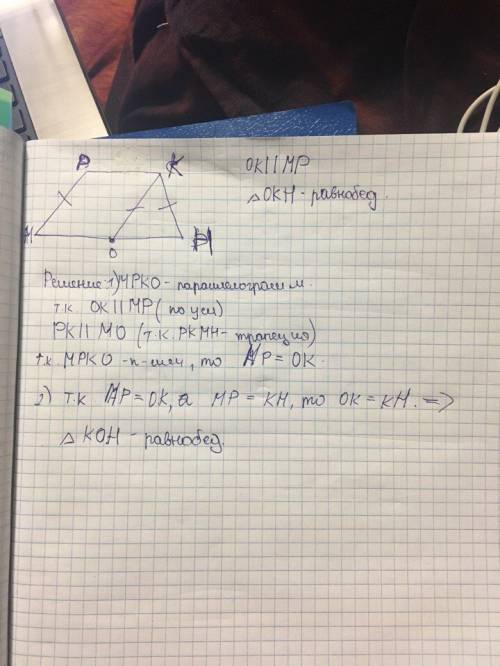 P K
M O H
OK || MP
△ OKH - равнобед.
Решение: 1) MPKO - параллелограмм.
т.к. OK || MP (по усл)
PK || MO (т.к. PKMH - трапеция)
т.к. MPKO - п-мм, то MP = OK.
2) т.к MP = OK, а MP = KH, то OK = KH. =>
△ KOH - равнобед.